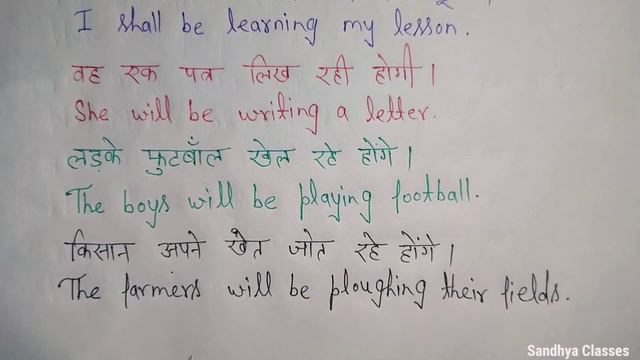 I shall be learning my lesson.
वह एक पत्र लिख रही होगी।
She will be writing a letter.
लड़के फुटबॉल खेल रहे होंगे।
The boys will be playing football.
किसान अपने खेत जोत रहे होंगे।
The farmers will be ploughing their fields.
Sandhya Classes